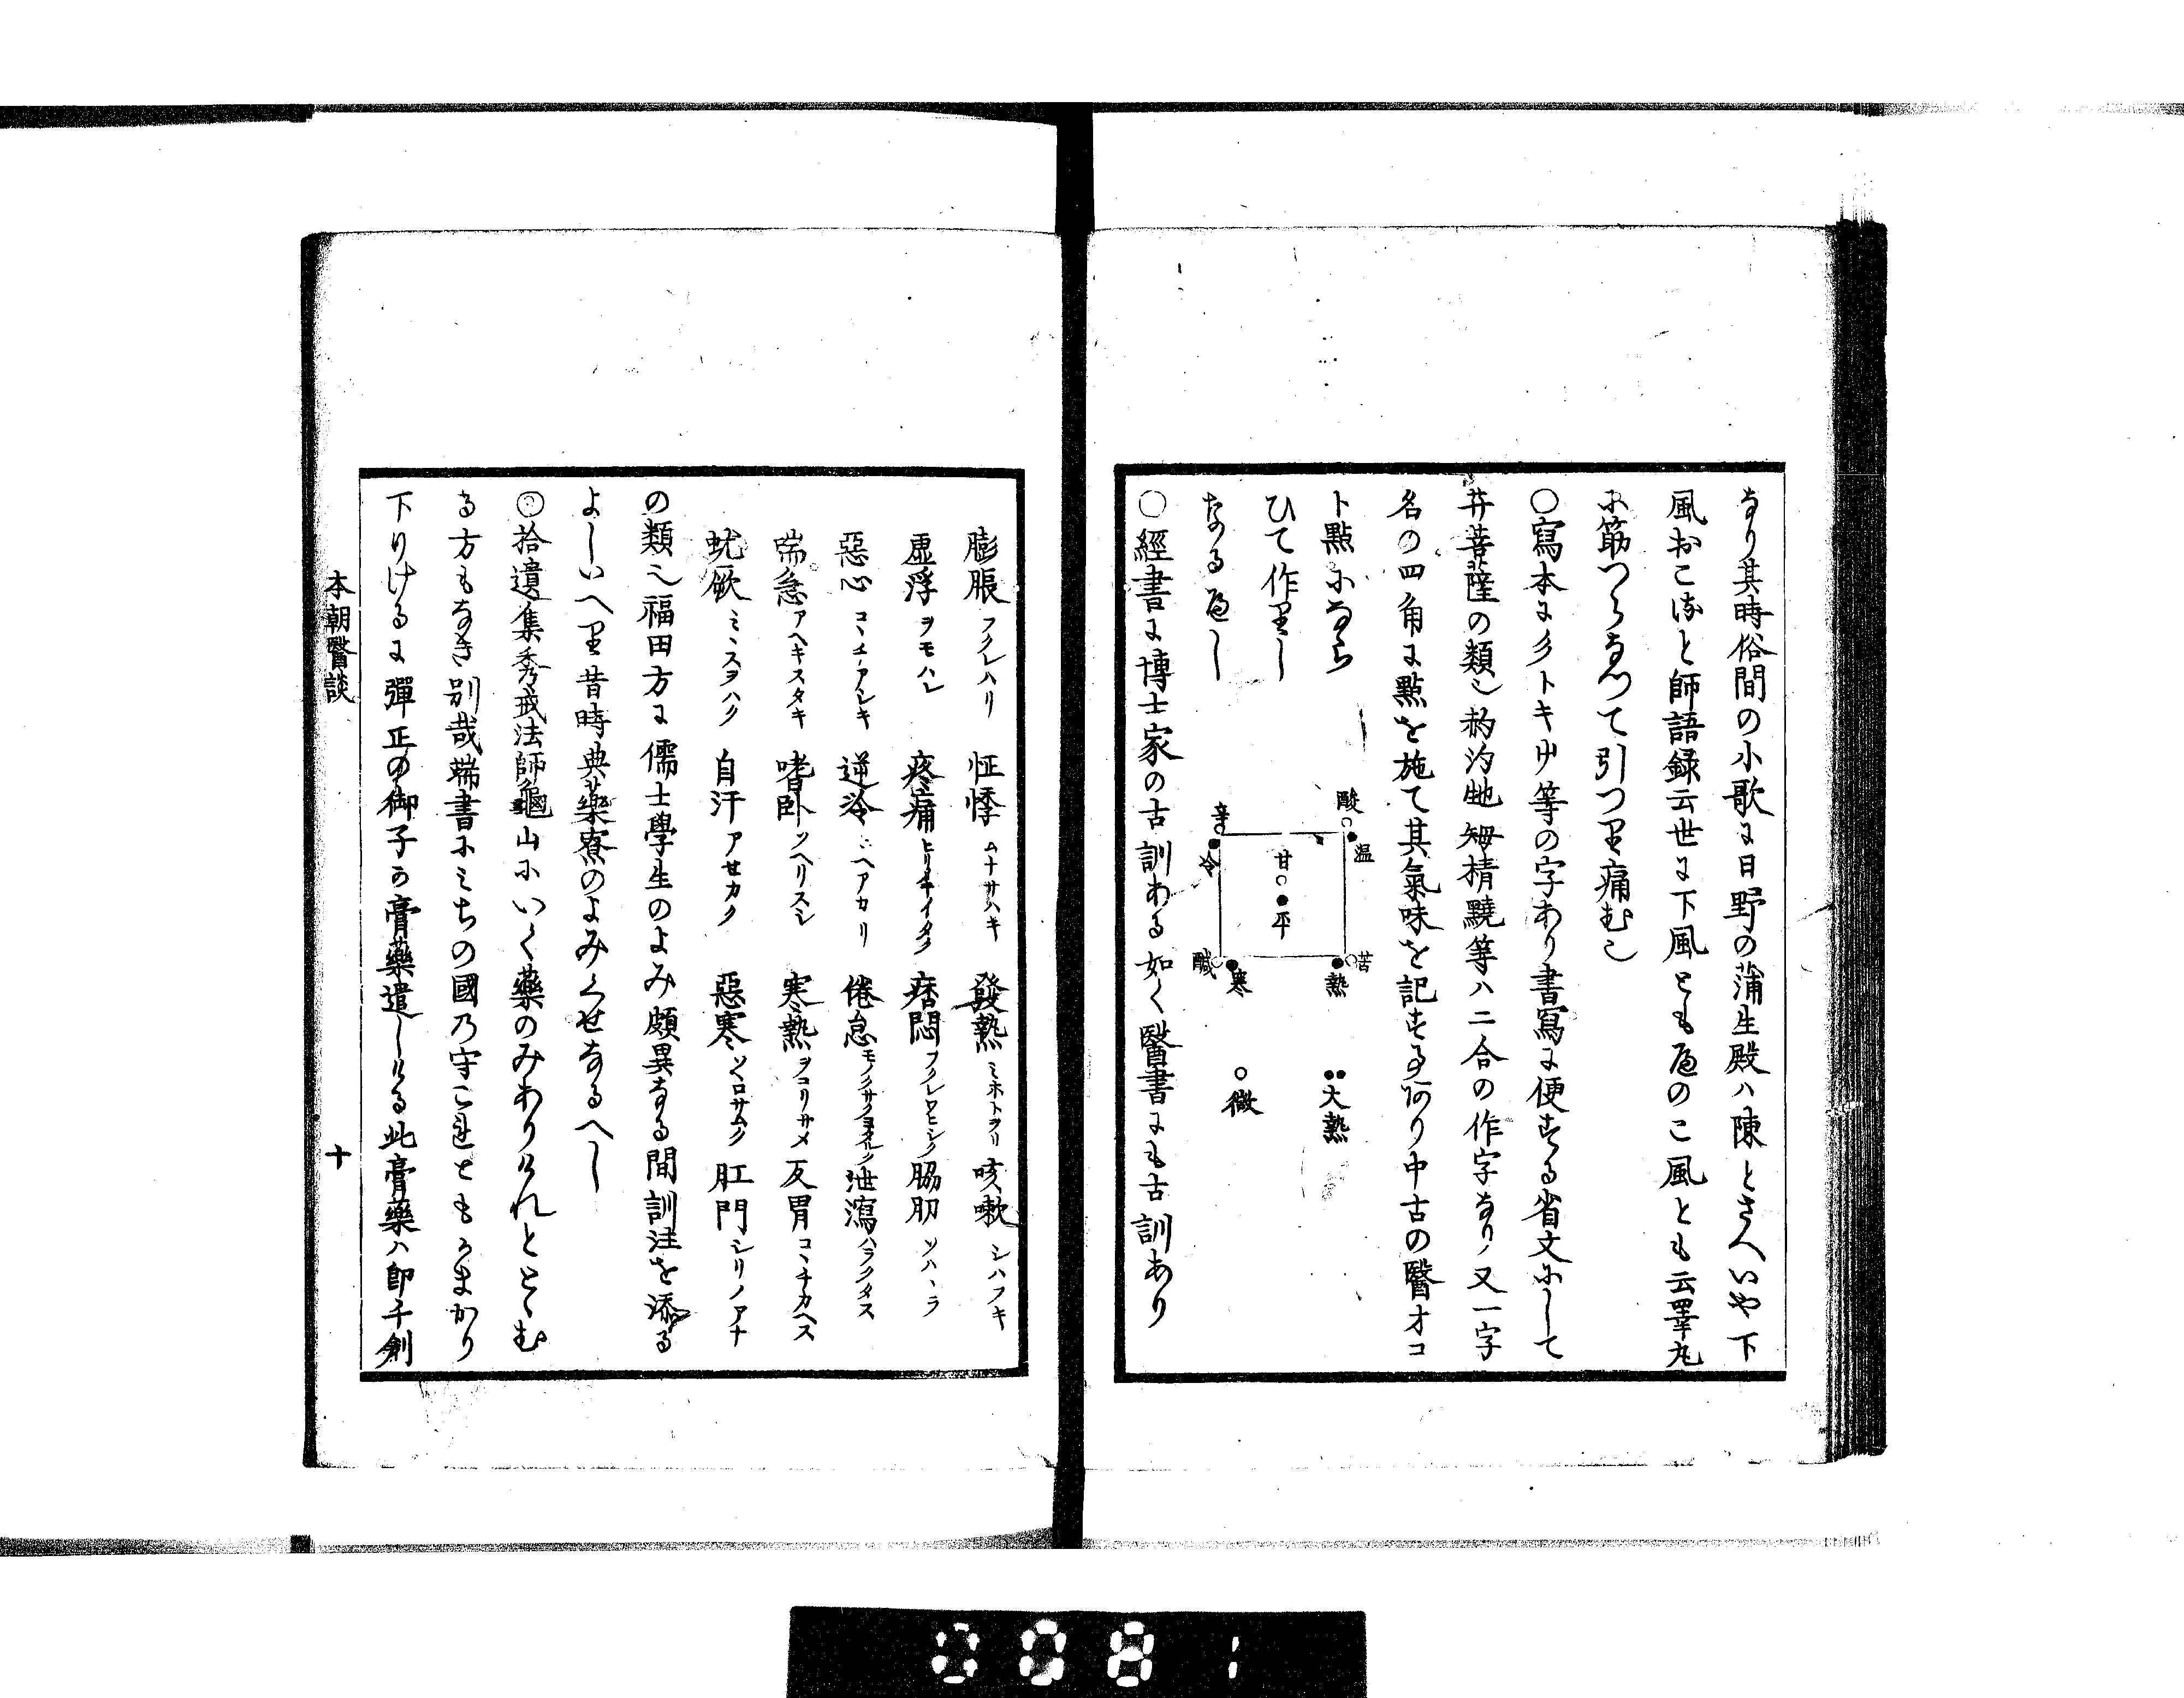 なり其時俗間の小歌に日野の蒲生殿ハ陳とさへいや下
風おこると師語録云世に下風とも𛀁のこ風とも云睾丸
に筋つらなつて引つり痛む也
〇寫本に𛂞トキ等の字あり書寫に便する省文にして
井菩薩の類也
等ハ二合の作字なり又一字
名の四角に點を施て其氣味を記する有り中古の醫オコ
ト點になら
ひて作りし
なるへし
酸 温
辛 冷
甘 平
苦 熱
醎 寒
大熱
微
〇經書に博士家の古訓ある如く醫書にも古訓あり
膨脹フクレハリ 怔悸ムナサハキ 發熱ミホトヲリ 咳嗽シハフキ
虚浮ヲモハレ 疼痛ヒリヽキイタク 痞悶フクレワヒシク 脇肋ソハヽラ
惡心コヽチアシキ 逆冷ヒヘアカリ 倦怠 泄瀉ハラクタス
喘急アヘキスタキ 嗜卧ソヘリスシ 寒熱ヲコリサメ 反胃コヽチカヘス
蚘厥ミヽスヲハク 自汗アセカク 惡寒ソヽロサムク 肛門シリノアナ
の類也福田方に儒士學生のよみ頗異なる間訓注を添る
よしいへり昔時典藥寮のよみくせなるへし
〇拾遺集秀戒法師龜山にいく藥のみありけれととゝむ
る方もなき別哉端書にみちの國乃守これともかまかり
下りけるに彈正の御子の膏藥遣しける此膏藥ハ即千創
本朝醫談
十
0081